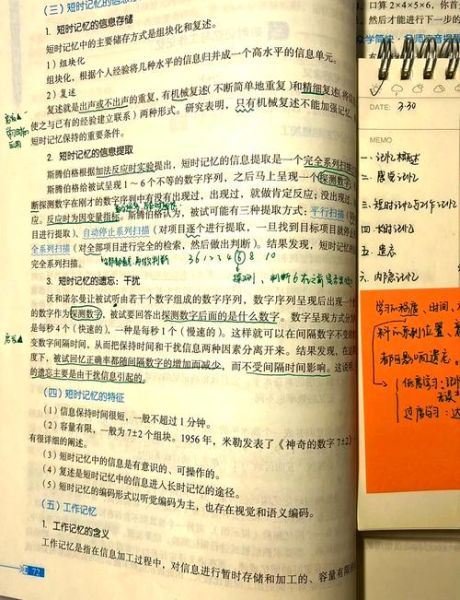 (三)短时记忆的信息
1. 短时记忆的信息存储
短时记忆中的主要储存方式是组块化和复述。
1)组块化
组块化,根据个人经验将几种水平的信息归并成一个高水平的信息单元。
2)复述
复述就是出声或不出声的重复,有机械复述(不断简单地重复)和精细复述(将
使之与已有的经验建立联系)两种形式。研究表明,只有机械复述不能加强记忆,
短时记忆保持的重要条件。
2. 短时记忆的信息提取
斯腾伯格根据加法反应时实验提出,短时记忆的信息提取是一个完全系列扫描
斯腾伯格给被试呈现1~6个不等的数字序列,之后马上呈现一个探测数字,
断探测数字在刚才的数字序列中有没有出现过,出现过,就做肯定反应;没出现过,
应。反应时为因变量指标。斯腾伯格认为,被试可能有三种提取方式:平行扫描
目进行提取)、自动停止系列扫描(对项目逐个进行提取,一旦找到目标项目就停止
全系列扫描(对全部项目进行完全的检索,然后做出判断)。结果发现,短时记忆的
完全系列扫描。
3. 短时记忆的遗忘:干扰
沃和诺尔曼让被试听由若干个数字组成的数字序列,数字序列呈现后出现一个
的数字作为探测数字,被试要回答出探测数字后面的是什么数字。数字呈现方式分
是每秒4个(快速的),一种是每秒1个(慢速的)。这样就可以在间隔数字不变的
变数字间隔时间,从而把保持时间和干扰信息两种因素分离开来。结果发现,在这
度下,被试回忆正确率都随间隔数字的增加而减少,而不受间隔时间影响。这说明
的遗忘主要是由干扰信息引起的。
(四)短时记忆的特征
(1)信息保持时间很短,一般不超过1分钟。
(2)容量有限,一般为7±2个组块。1956年,米勒发表了《神奇的数字7±2》
有很详细的阐述。
(3)短时记忆中的信息是有意识的、可操作的。
(4)复述是短时记忆中的信息进入长时记忆的途径。
(5)短时记忆的编码形式以听觉编码为主,也存在视觉和语义编码。
(五)工作记忆
1. 工作记忆的含义
工作记忆是指在信息加工过程中,对信息进行暂时存储和加工的、容量有限
72
口算2×4×5×6,你首
然后才能进行下一步的
DATE: 3.30
MEMO
一. 记忆概述
二. 感觉记忆
三. 短时记忆与工作记忆
四. 长时记忆
五. 遗忘
六. 内隐记忆
都会影响遗忘。